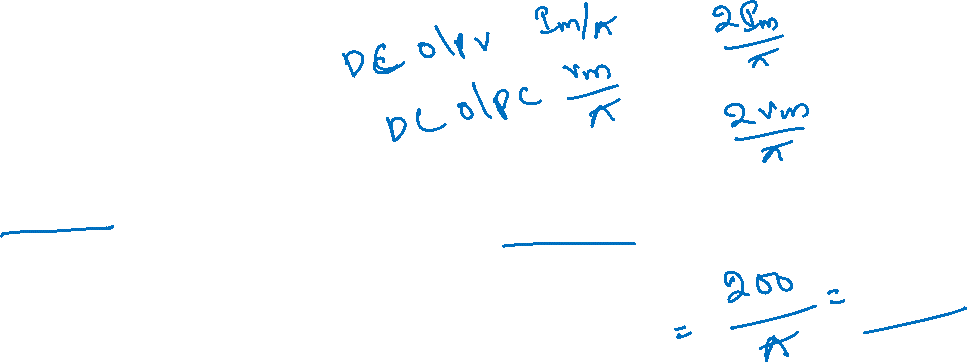 DC o/p V Im/π 2Im/π
DC o/p C Vm/π 2Vm/π
= 200/π =